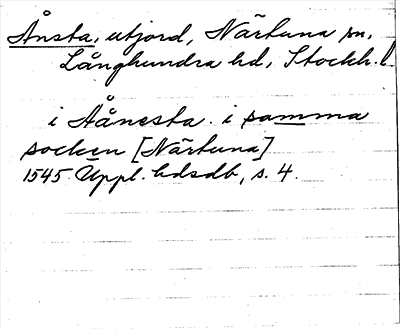 Ånsta, utjord, Närtuna sn,
Långhundra hd, Stockh. l.
i Aånesta i samma
socken [Närtuna]
1545 Uppl. hdsdb, s. 4.